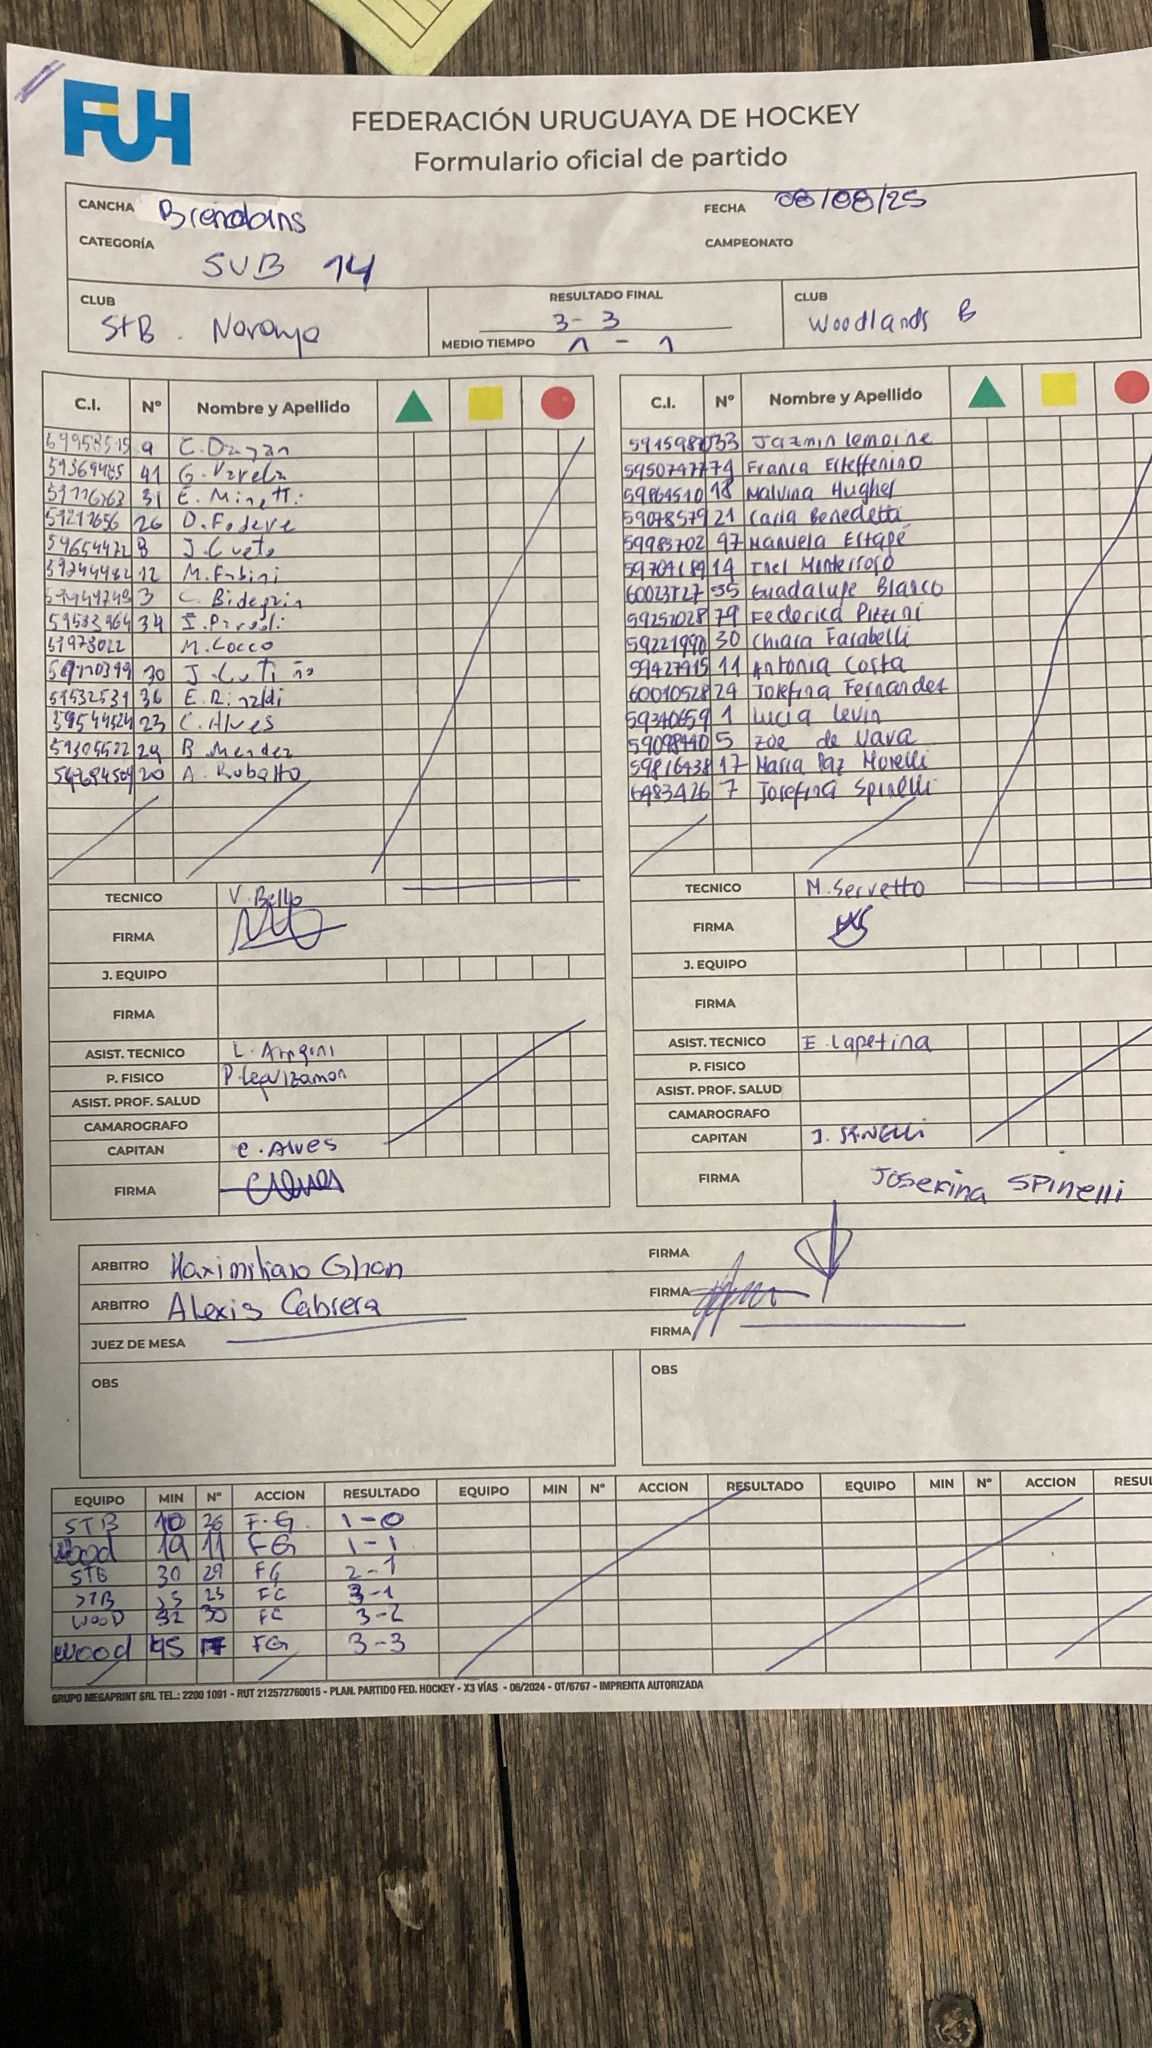 FUH
FEDERACIÓN URUGUAYA DE HOCKEY
Formulario oficial de partido
CANCHA Brendans FECHA 08/08/25
CATEGORÍA SUB 14 CAMPEONATO
CLUB StB. Naranja
RESULTADO FINAL 3-3
MEDIO TIEMPO 1 - 1
CLUB Woodlands B
C.I. Nº Nombre y Apellido
9 C. Dagan
41 G. Varela
31 E. Minetti
26 D. Federe
8 J. Cueto
12 M. Fabini
3 C. Bidegain
34 I. Paroli
M. Cocco
30 J. Cutiño
36 E. Rinaldi
23 C. Alves
29 B. Mendez
20 A. Robatto
TECNICO V. Bello
FIRMA
J. EQUIPO
FIRMA
ASIST. TECNICO L. Arrgoni
P. FISICO P. Leguizamon
ASIST. PROF. SALUD
CAMAROGRAFO
CAPITAN C. Alves
FIRMA
C.I. Nº Nombre y Apellido
33 Jazmin Lemoine
74 Franca Esteffenino
18 Malvina Hughes
59078579 21 Carla Benedetti
59983702 97 Manuela Estapé
14 Inel Monterroso
55 Guadalupe Blanco
59252028 79 Federica Pizzini
30 Chiara Farabelli
59427915 11 Antonia Costa
60010528 29 Josefina Fernandez
59340659 1 Lucia Levin
5 Zoe de Nava
59816438 17 Maria Paz Morelli
6483426 7 Josefina Spinelli
TECNICO M. Servetto
FIRMA
J. EQUIPO
FIRMA
ASIST. TECNICO E. Lapetina
P. FISICO
ASIST. PROF. SALUD
CAMAROGRAFO
CAPITAN J. SPINELLI
FIRMA Joserina Spinelli
ARBITRO Maximiliano Ghan FIRMA
ARBITRO Alexis Cabrera FIRMA
JUEZ DE MESA FIRMA
OBS OBS
EQUIPO MIN Nº ACCION RESULTADO EQUIPO MIN Nº ACCION RESULTADO EQUIPO MIN Nº ACCION RESUL
STB 10 26 F.G. 1-0
Wood 19 11 FG 1-1
STB 30 29 FG 2-1
STB 23 FC 3-1
WOOD 32 30 FC 3-2
Wood 45 17 FG 3-3
GRUPO MEGAPRINT SRL TEL.: 2200 1091 - RUT 212572760015 - PLAN. PARTIDO FED. HOCKEY - X3 VÍAS - 06/2024 - OT/6767 - IMPRENTA AUTORIZADA